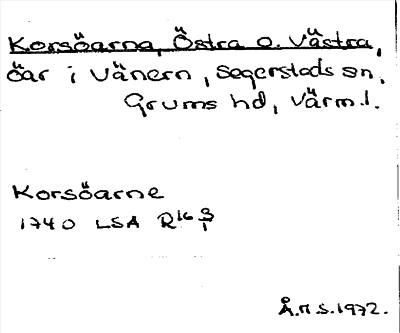 Korsöarna, Östra o. Västra,
öar i Vänern, Segerstads sn,
Grums hd, Värml.
Korsöarne
1740 LSA R16 9/1
Å.M.S. 1972.